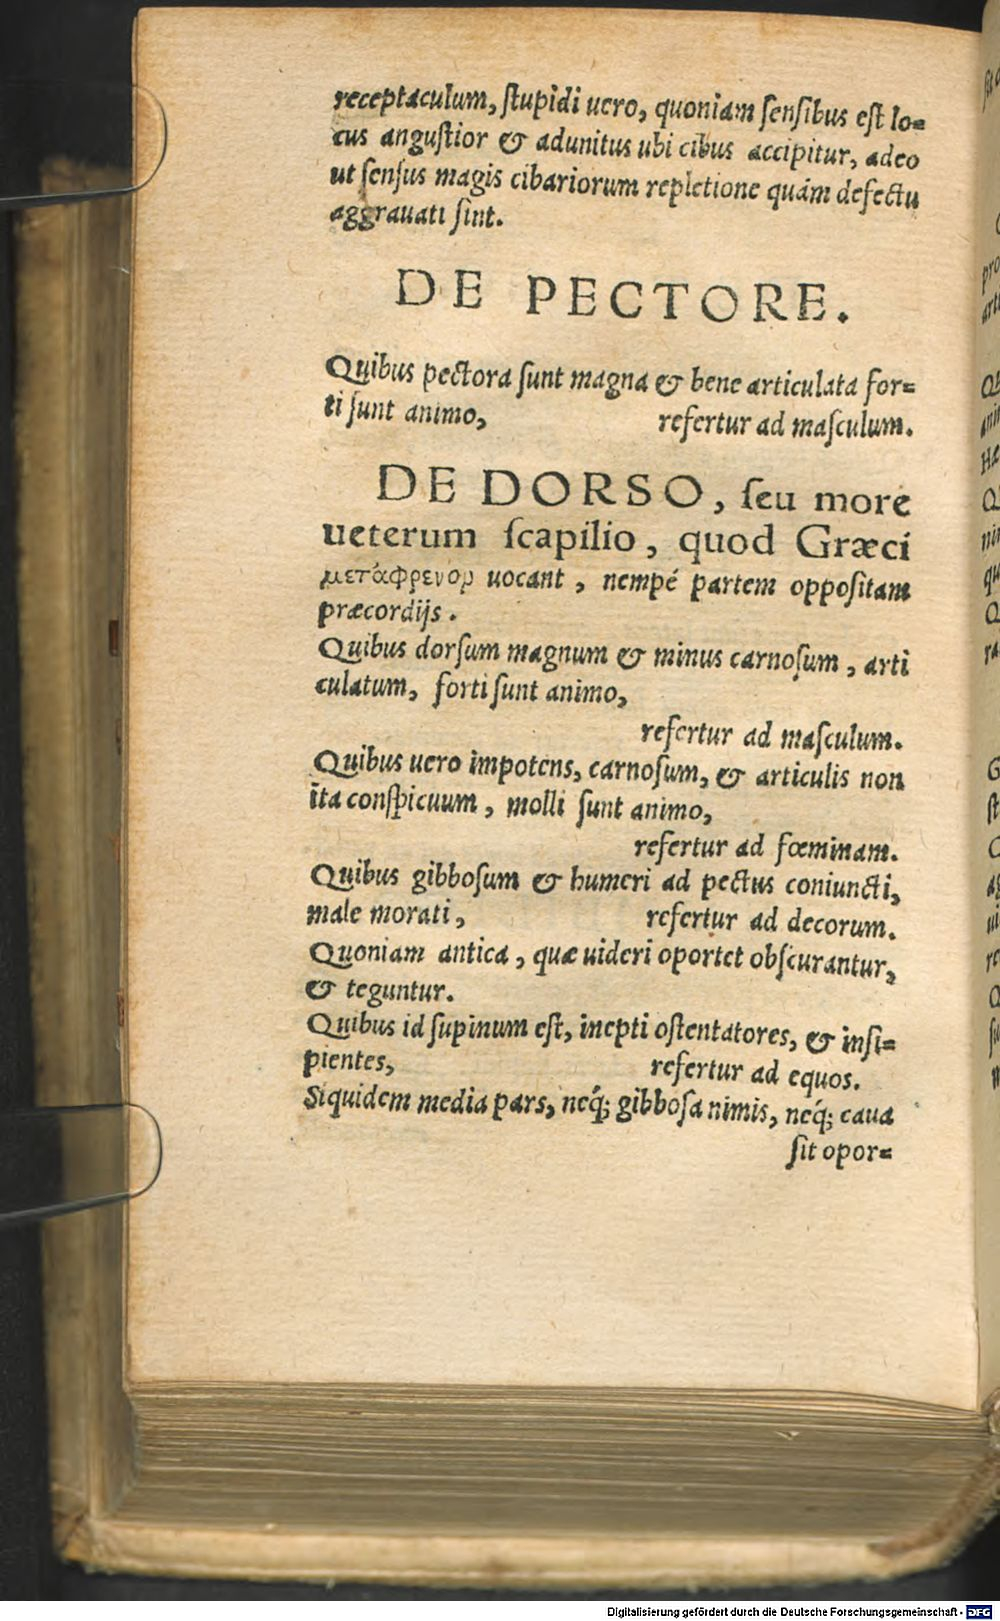 receptaculum, ſtupidi uero, quoniam ſenſibus eſt lo=
cus anguſtior & adunitus ubi cibus accipitur, adeo
ut ſenſus magis cibariorum repletione quám defectu
aggrauati ſint.
DE PECTORE.
Quibus pectora ſunt magna & bene articulata for=
ti ſunt animo, refertur ad maſculum.
DE DORSO, ſeu more
ueterum ſcapilio, quod Græci
μετάφρενον uocant, nempé partem oppoſitam
præcordijs.
Quibus dorſum magnum & minus carnoſum, arti
culatum, forti ſunt animo,
refertur ad maſculum.
Quibus uero impotens, carnoſum, & articulis non
ita conſpicuum, molli ſunt animo,
refertur ad fœminam.
Quibus gibboſum & humeri ad pectus coniuncti,
male morati, refertur ad decorum.
Quoniam antica, quæ uideri oportet obſcurantur,
& teguntur.
Quibus id ſupinum eſt, inepti oſtentatores, & inſi=
pientes, refertur ad equos.
Siquidem media pars, neq́; gibboſa nimis, neq́; caua
ſit opor=
Digitalisierung gefördert durch die Deutsche Forschungsgemeinschaft - DFG